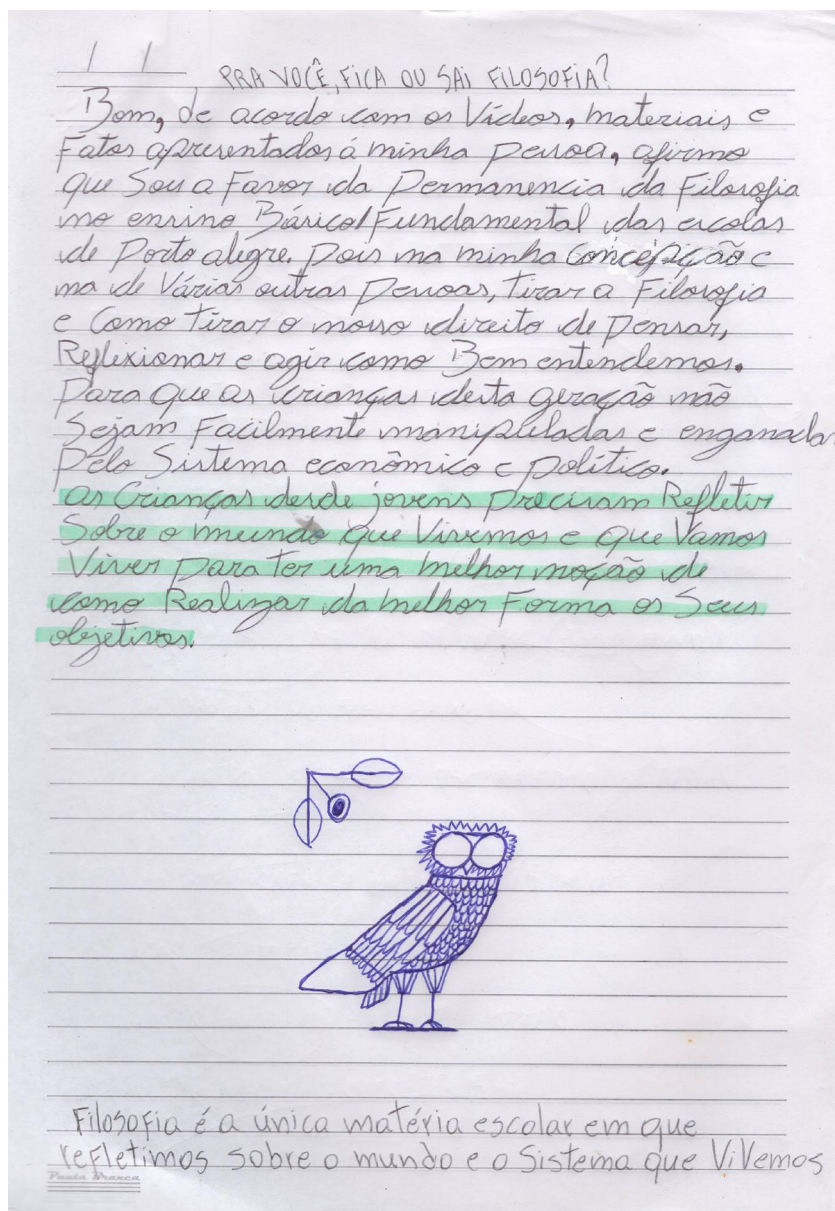 PRA VOCÊ, FICA OU SAI FILOSOFIA?
Bom, de acordo com os Vídeos, materiais e
Fatos apresentados á minha pessoa, afirmo
que Sou a Favor da Permanencia da Filosofia
no ensino Básico/Fundamental das escolas
de Porto alegre. Pois na minha Concepição e
na de Várias outras Pessoas, Tirar a Filosofia
e Como Tirar o nosso direito de Pensar,
Reflexionar e agir como Bem entendemos.
Para que as crianças desta geração não
Sejam Facilmente manipuladas e enganadas
Pelo Sistema econômico e político.
As Crianças desde jovens Precisam Refletir
Sobre o mundo que Vivemos e que Vamos
Viver Para Ter uma melhor noção de
como Realizar da melhor Forma os Seus
objetivos.
Filosofia é a única matéria escolar em que
refletimos sobre o mundo e o Sistema que ViVemos
Pauta Branca